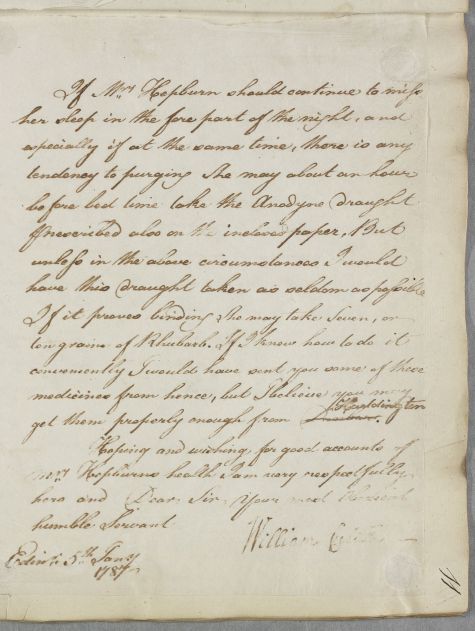 If Mrs Hepburn should continue to miss
her sleep in the fore part of the night, and
especially if at the same time, there is any
tendency to purging she may about an hour
before bed time take the Anodyne draught
prescribed also on the inclosed paper. But
unless in the above circumstances I would
have this draught taken as seldom as possible
If it proves binding she may take Seven, or
ten grains of Rhubarb. If I knew how to do it
conveniently I would have sent you some of these
medicines from hence, but I believe you may
get them properly enough from Haddington
Hoping and wishing for good accounts of
Mrs Hepburns health I am very respectfully
hers and Dear Sir Your most Obedient
humble Servant
William
Edinr 5th Jany
1787